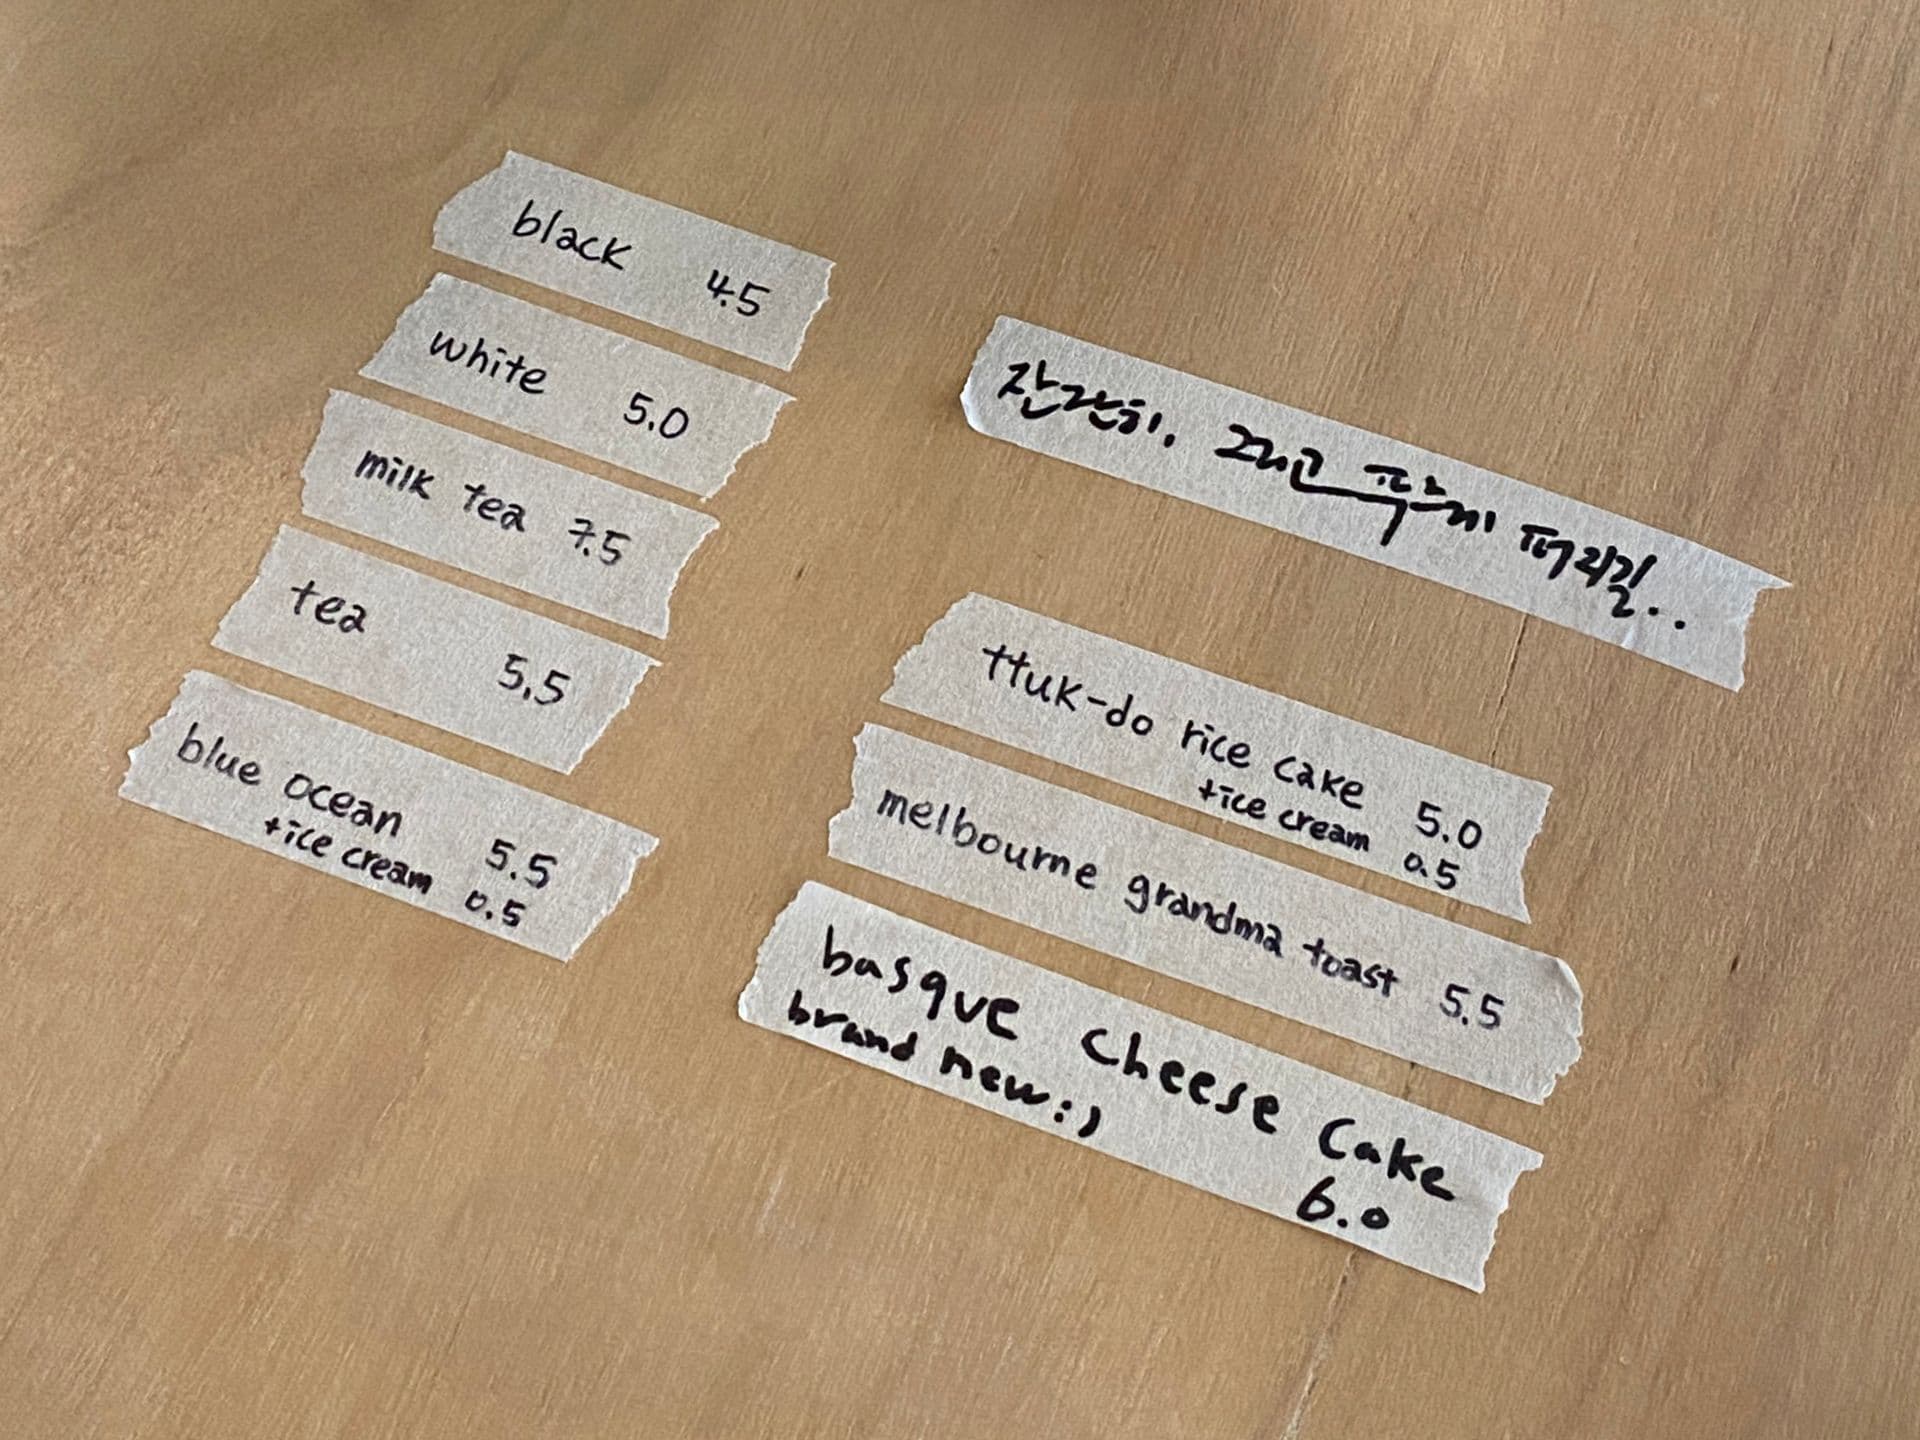 black 4.5
white 5.0
milk tea 7.5
tea 5.5
blue ocean 5.5
+ice cream 0.5
잔잔히.
ttuk-do rice cake 5.0
+ice cream 0.5
melbourne grandma toast 5.5
basque cheese cake
brand new:)
6.0